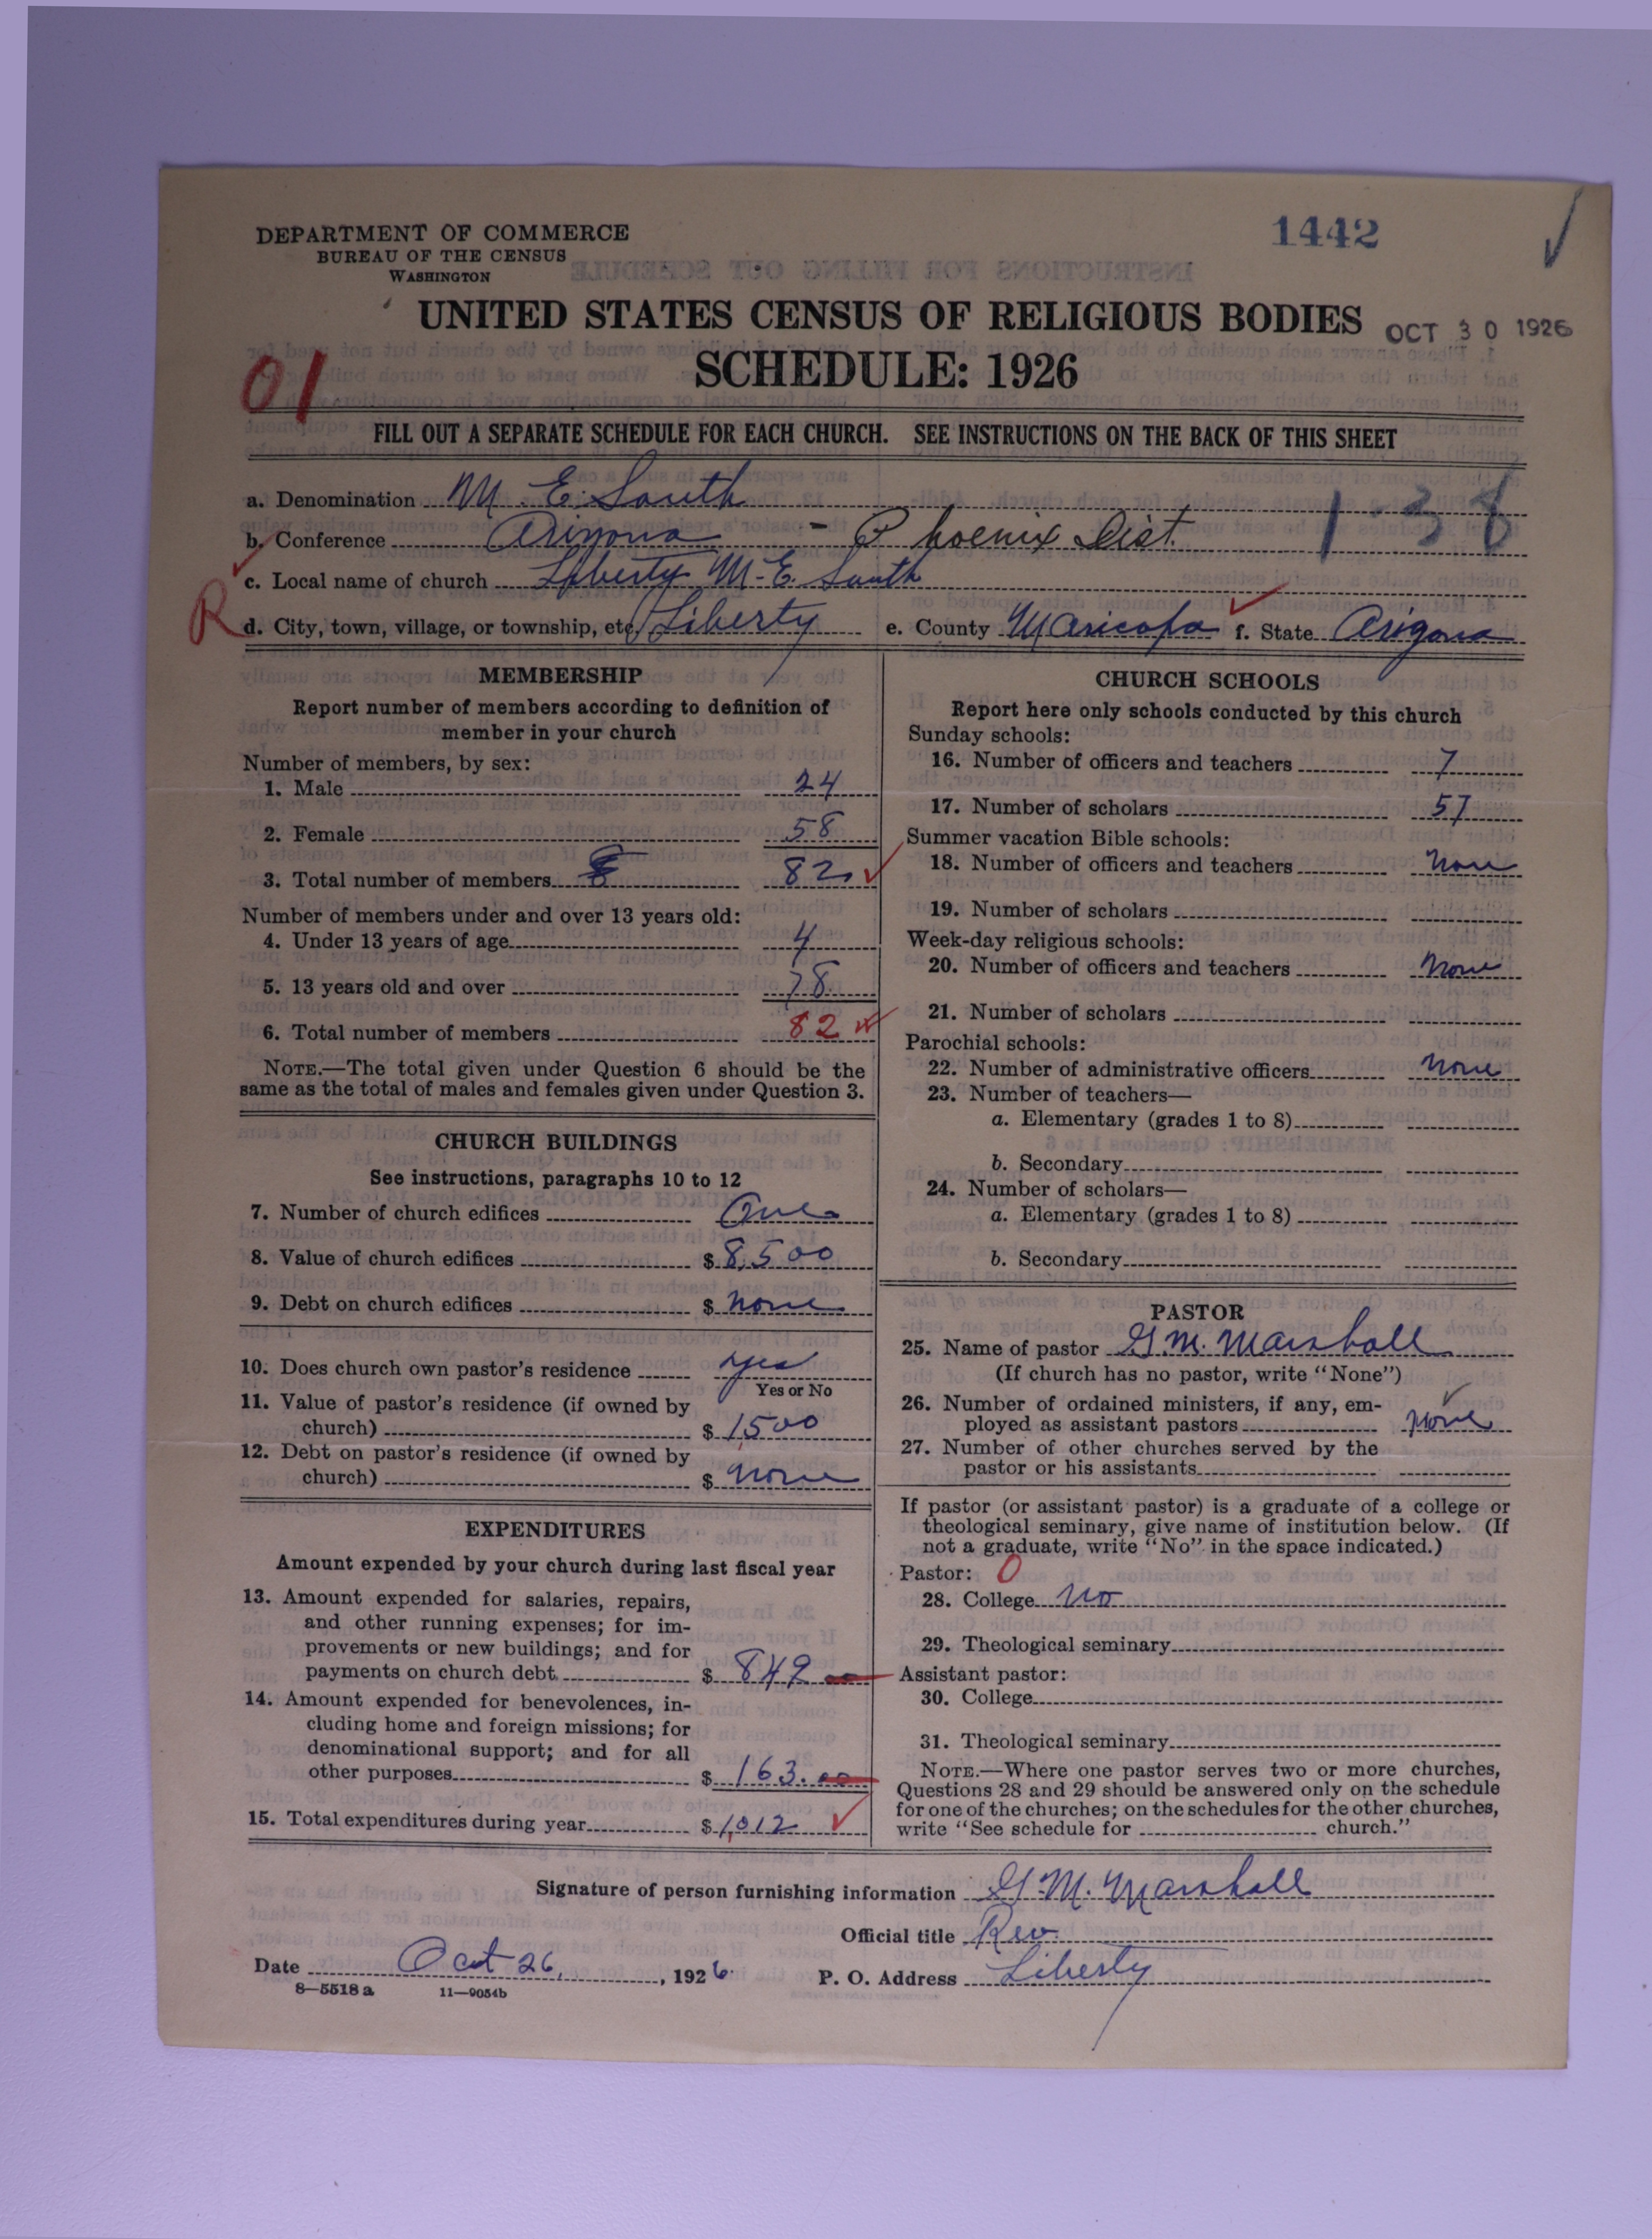 1442
DEPARTMENT OF COMMERCE
BUREAU OF THE CENSUS
WASHINGTON
UNITED STATES CENSUS OF RELIGIOUS BODIES
OCT 30 1926
SCHEDULE: 1926
01
FILL OUT A SEPARATE SCHEDULE FOR EACH CHURCH. SEE INSTRUCTIONS ON THE BACK OF THIS SHEET
a. Denomination M. E. South
1-38
b. Conference Arizona - Phoenix Dist.
c. Local name of church Liberty M.E. South
R
d. City, town, village, or township, etc. Liberty e. County Maricopa f. State Arizona
MEMBERSHIP
Report number of members according to definition of
member in your church
Number of members, by sex:
1. Male 24
2. Female 58
3. Total number of members 82
Number of members under and over 13 years old:
4. Under 13 years of age 4
5. 13 years old and over 78
6. Total number of members 82
NOTE.—The total given under Question 6 should be the
same as the total of males and females given under Question 3.
CHURCH BUILDINGS
See instructions, paragraphs 10 to 12
7. Number of church edifices One
8. Value of church edifices $ 8,500
9. Debt on church edifices $ none
10. Does church own pastor's residence yes
Yes or No
11. Value of pastor's residence (if owned by
church) $ 1,500
12. Debt on pastor's residence (if owned by
church) $ none
EXPENDITURES
Amount expended by your church during last fiscal year
13. Amount expended for salaries, repairs,
and other running expenses; for im-
provements or new buildings; and for
payments on church debt $ 849 00
14. Amount expended for benevolences, in-
cluding home and foreign missions; for
denominational support; and for all
other purposes $ 163.00
15. Total expenditures during year $ 1,012
CHURCH SCHOOLS
Report here only schools conducted by this church
Sunday schools:
16. Number of officers and teachers 7
17. Number of scholars 57
Summer vacation Bible schools:
18. Number of officers and teachers none
19. Number of scholars
Week-day religious schools:
20. Number of officers and teachers none
21. Number of scholars
Parochial schools:
22. Number of administrative officers none
23. Number of teachers—
a. Elementary (grades 1 to 8)
b. Secondary
24. Number of scholars—
a. Elementary (grades 1 to 8)
b. Secondary
PASTOR
25. Name of pastor G.M. Marshall
(If church has no pastor, write "None")
26. Number of ordained ministers, if any, em-
ployed as assistant pastors none
27. Number of other churches served by the
pastor or his assistants
If pastor (or assistant pastor) is a graduate of a college or
theological seminary, give name of institution below. (If
not a graduate, write "No" in the space indicated.)
Pastor: 0
28. College no
29. Theological seminary
Assistant pastor:
30. College
31. Theological seminary
NOTE.—Where one pastor serves two or more churches,
Questions 28 and 29 should be answered only on the schedule
for one of the churches; on the schedules for the other churches,
write "See schedule for church."
Signature of person furnishing information G.M. Marshall
Official title Rev.
Date Oct 26, , 1926. P. O. Address Liberty
8—5518 a 11—9054b